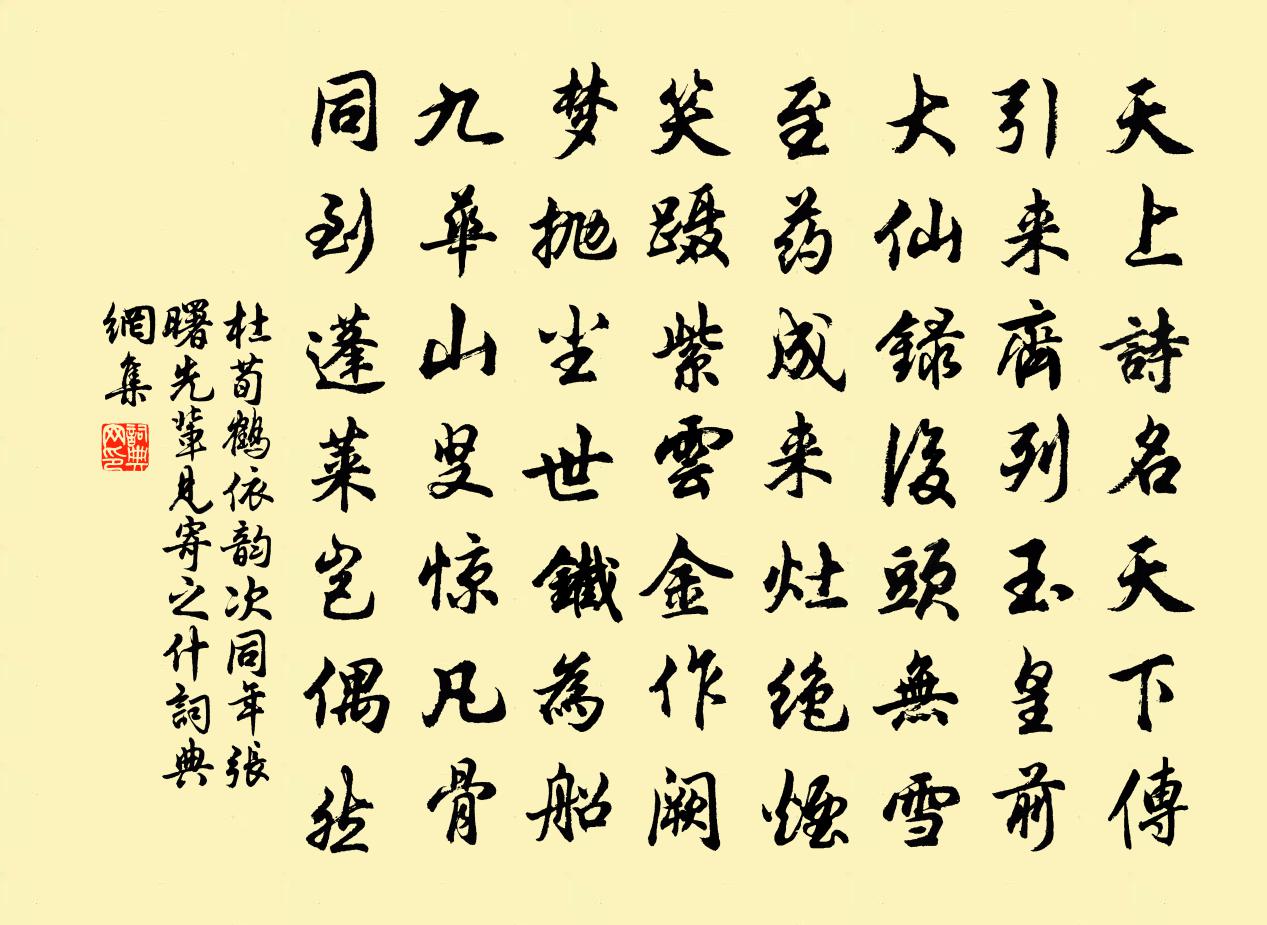 天上詩名天下傳
引来齊列玉皇前
大仙録後頭無雪
至药成来灶绝煙
笑蹑紫雲金作阙
梦抛尘世鐵為船
九華山叟惊凡骨
同到蓬莱岂偶然
杜荀鶴依韵次同年張
曙先輩見寄之什詞典
網集
詞典
网印